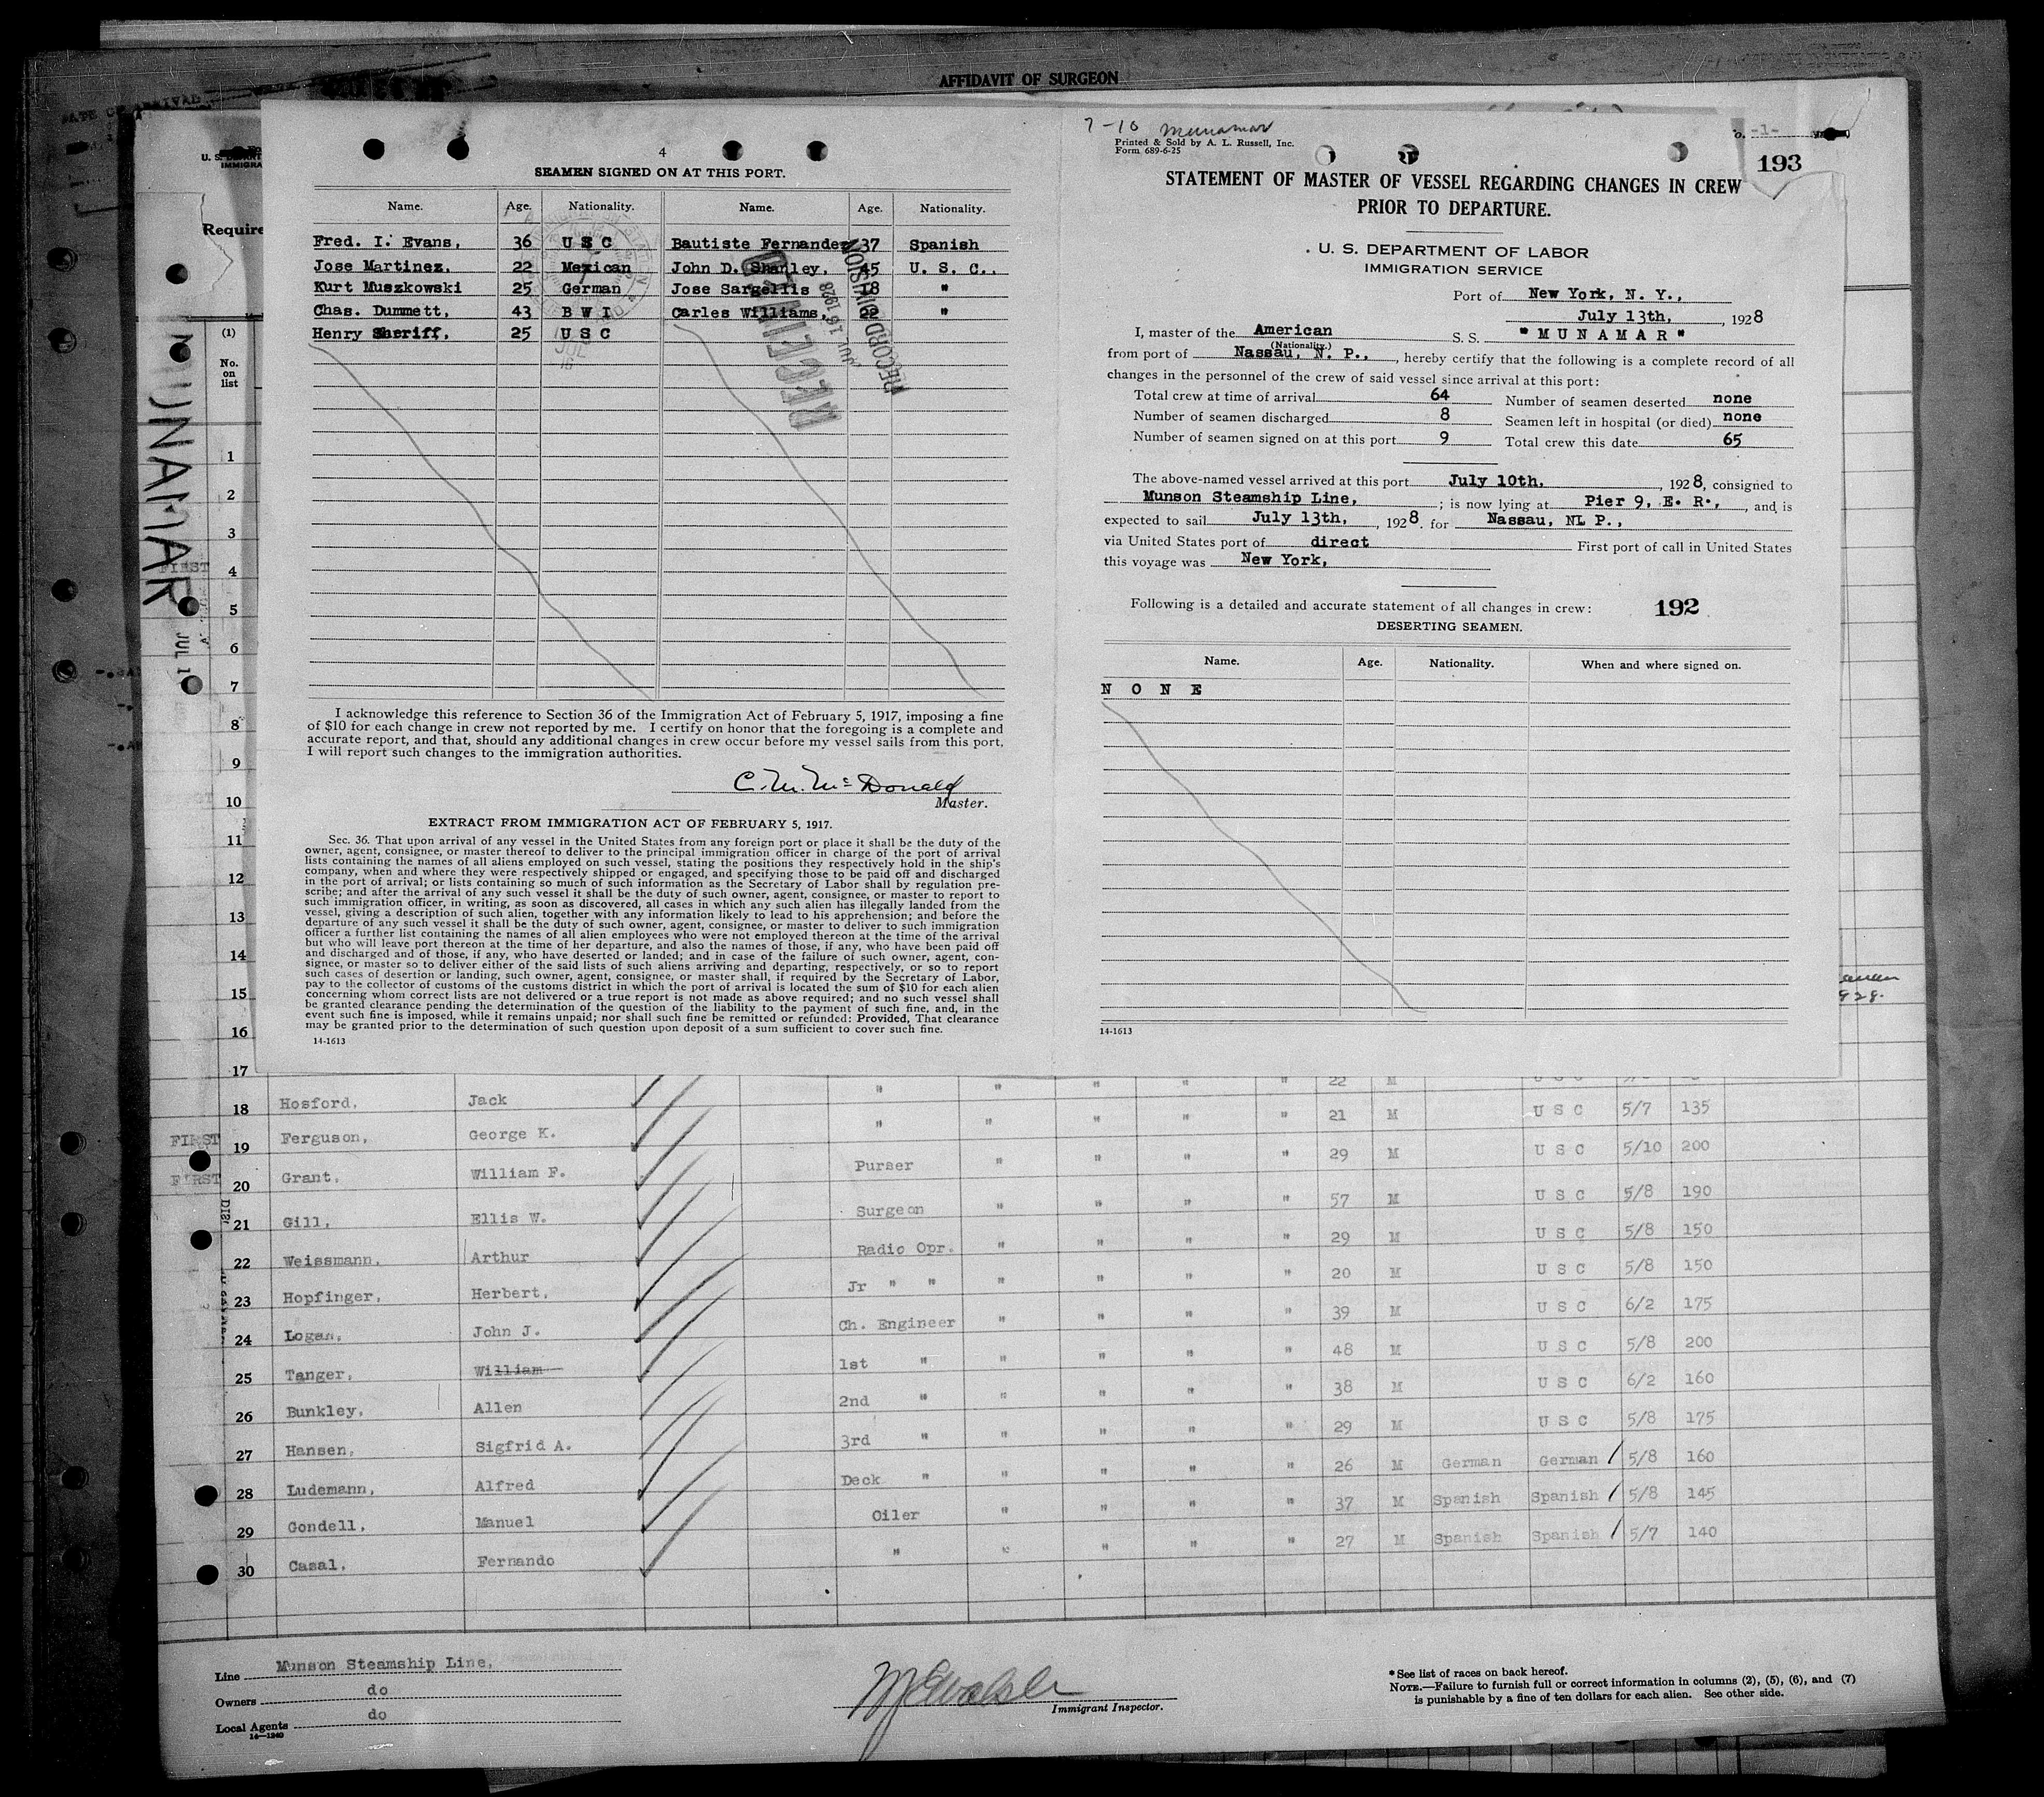 AFFIDAVIT OF SURGEON
4
SEAMEN SIGNED ON AT THIS PORT.
Name. Age. Nationality. Name. Age. Nationality.
Fred. I. Evans, 36 U S C Bautiste Fernandez 37 Spanish
Jose Martinez. 22 Mexican John D. Shanley. 45 U. S. C..
Kurt Muszkowski 25 German Jose Sargellis 18 "
Chas. Dummett, 43 B W I Carles Williams, 22 "
Henry Sheriff. 25 U S C
RECEIVED
JUL 16 1928
RECORD DIVISION
I acknowledge this reference to Section 36 of the Immigration Act of February 5, 1917, imposing a fine
of $10 for each change in crew not reported by me. I certify on honor that the foregoing is a complete and
accurate report, and that, should any additional changes in crew occur before my vessel sails from this port,
I will report such changes to the immigration authorities.
C. M. McDonald
Master.
EXTRACT FROM IMMIGRATION ACT OF FEBRUARY 5, 1917.
Sec. 36. That upon arrival of any vessel in the United States from any foreign port or place it shall be the duty of the
owner, agent, consignee, or master thereof to deliver to the principal immigration officer in charge of the port of arrival
lists containing the names of all aliens employed on such vessel, stating the positions they respectively hold in the ship's
company, when and where they were respectively shipped or engaged, and specifying those to be paid off and discharged
in the port of arrival; or lists containing so much of such information as the Secretary of Labor shall by regulation pre-
scribe; and after the arrival of any such vessel it shall be the duty of such owner, agent, consignee, or master to report to
such immigration officer, in writing, as soon as discovered, all cases in which any such alien has illegally landed from the
vessel, giving a description of such alien, together with any information likely to lead to his apprehension; and before the
departure of any such vessel it shall be the duty of such owner, agent, consignee, or master to deliver to such immigration
officer a further list containing the names of all alien employees who were not employed thereon at the time of the arrival
but who will leave port thereon at the time of her departure, and also the names of those, if any, who have been paid off
and discharged and of those, if any, who have deserted or landed; and in case of the failure of such owner, agent, con-
signee, or master so to deliver either of the said lists of such aliens arriving and departing, respectively, or so to report
such cases of desertion or landing, such owner, agent, consignee, or master shall, if required by the Secretary of Labor,
pay to the collector of customs of the customs district in which the port of arrival is located the sum of $10 for each alien
concerning whom correct lists are not delivered or a true report is not made as above required; and no such vessel shall
be granted clearance pending the determination of the question of the liability to the payment of such fine, and, in the
event such fine is imposed, while it remains unpaid; nor shall such fine be remitted or refunded: Provided, That clearance
may be granted prior to the determination of such question upon deposit of a sum sufficient to cover such fine.
14-1613
7-10 Munamar
Printed & Sold by A. L. Russell, Inc.
Form 689-6-25
-1-
193
STATEMENT OF MASTER OF VESSEL REGARDING CHANGES IN CREW
PRIOR TO DEPARTURE.
U. S. DEPARTMENT OF LABOR
IMMIGRATION SERVICE
Port of New York, N. Y.,
July 13th, 1928
I, master of the American S. S. "MUNAMAR"
(Nationality.)
from port of Nassau, N. P., hereby certify that the following is a complete record of all
changes in the personnel of the crew of said vessel since arrival at this port:
Total crew at time of arrival 64 Number of seamen deserted none
Number of seamen discharged 8 Seamen left in hospital (or died) none
Number of seamen signed on at this port 9 Total crew this date 65
The above-named vessel arrived at this port July 10th, 1928, consigned to
Munson Steamship Line, ; is now lying at Pier 9, E. R., and is
expected to sail July 13th, 1928. for Nassau, NL P.,
via United States port of direct First port of call in United States
this voyage was New York,
Following is a detailed and accurate statement of all changes in crew: 192
DESERTING SEAMEN.
Name. Age. Nationality. When and where signed on.
N O N E
14-1613
Require
MUNAMAR
JUL 1
(1)
No.
on
list
1
2
3
4
5
6
7
8
9
10
11
12
13
14
15
16
17 " " " " " 22 M
18 Hosford, Jack " " " " " 21 M U S C 5/7 135
FIRST 19 Ferguson, George K. Purser " " " " 29 M U S C 5/10 200
FIRST 20 Grant, William F. Surgeon " " " " 57 M U S C 5/8 190
21 Gill, Ellis W. Radio Opr. " " " " 29 M U S C 5/8 150
22 Weissmann, Arthur Jr " " " " " " 20 M U S C 5/8 150
23 Hopfinger, Herbert, Ch. Engineer " " " " 39 M U S C 6/2 175
24 Logan, John J. 1st " " " " " 48 M U S C 5/8 200
25 Tanger, William 2nd " " " " " 38 M U S C 6/2 160
26 Bunkley, Allen 3rd " " " " " 29 M U S C 5/8 175
27 Hansen, Sigfrid A. Deck " " " " " 26 M German German 5/8 160
28 Ludemann, Alfred Oiler " " " " 37 M Spanish Spanish 5/8 145
29 Gondell, Manuel " " " " " 27 M Spanish Spanish 5/7 140
30 Casal, Fernando
Line Munson Steamship Line,
Owners do
Local Agents do
14-1240
Immigrant Inspector.
*See list of races on back hereof.
NOTE.—Failure to furnish full or correct information in columns (2), (5), (6), and (7)
is punishable by a fine of ten dollars for each alien. See other side.